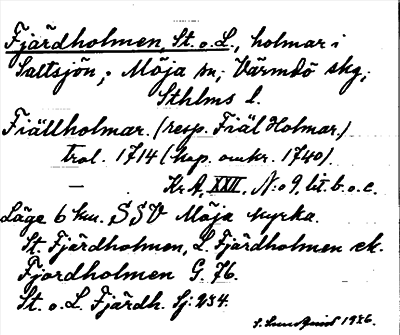 Fjärdholmen, St. o. L., holmar i
Saltsjön; Möja sn, Värmdö skg,
Sthlms l.
Fiällholmar. (resp. Fiäl Holmar.)
trol. 1714 (kop. omkr. 1740).
— Kr A, XXVI, N:o 9, lit. b. o. c.
Läge 6 km. SSV Möja kyrka.
St. Fjärdholmen, L. Fjärdholmen ek.
Fjordholmen G. 76.
St. o. L. Fjärdh. Sj: 234.
1926.